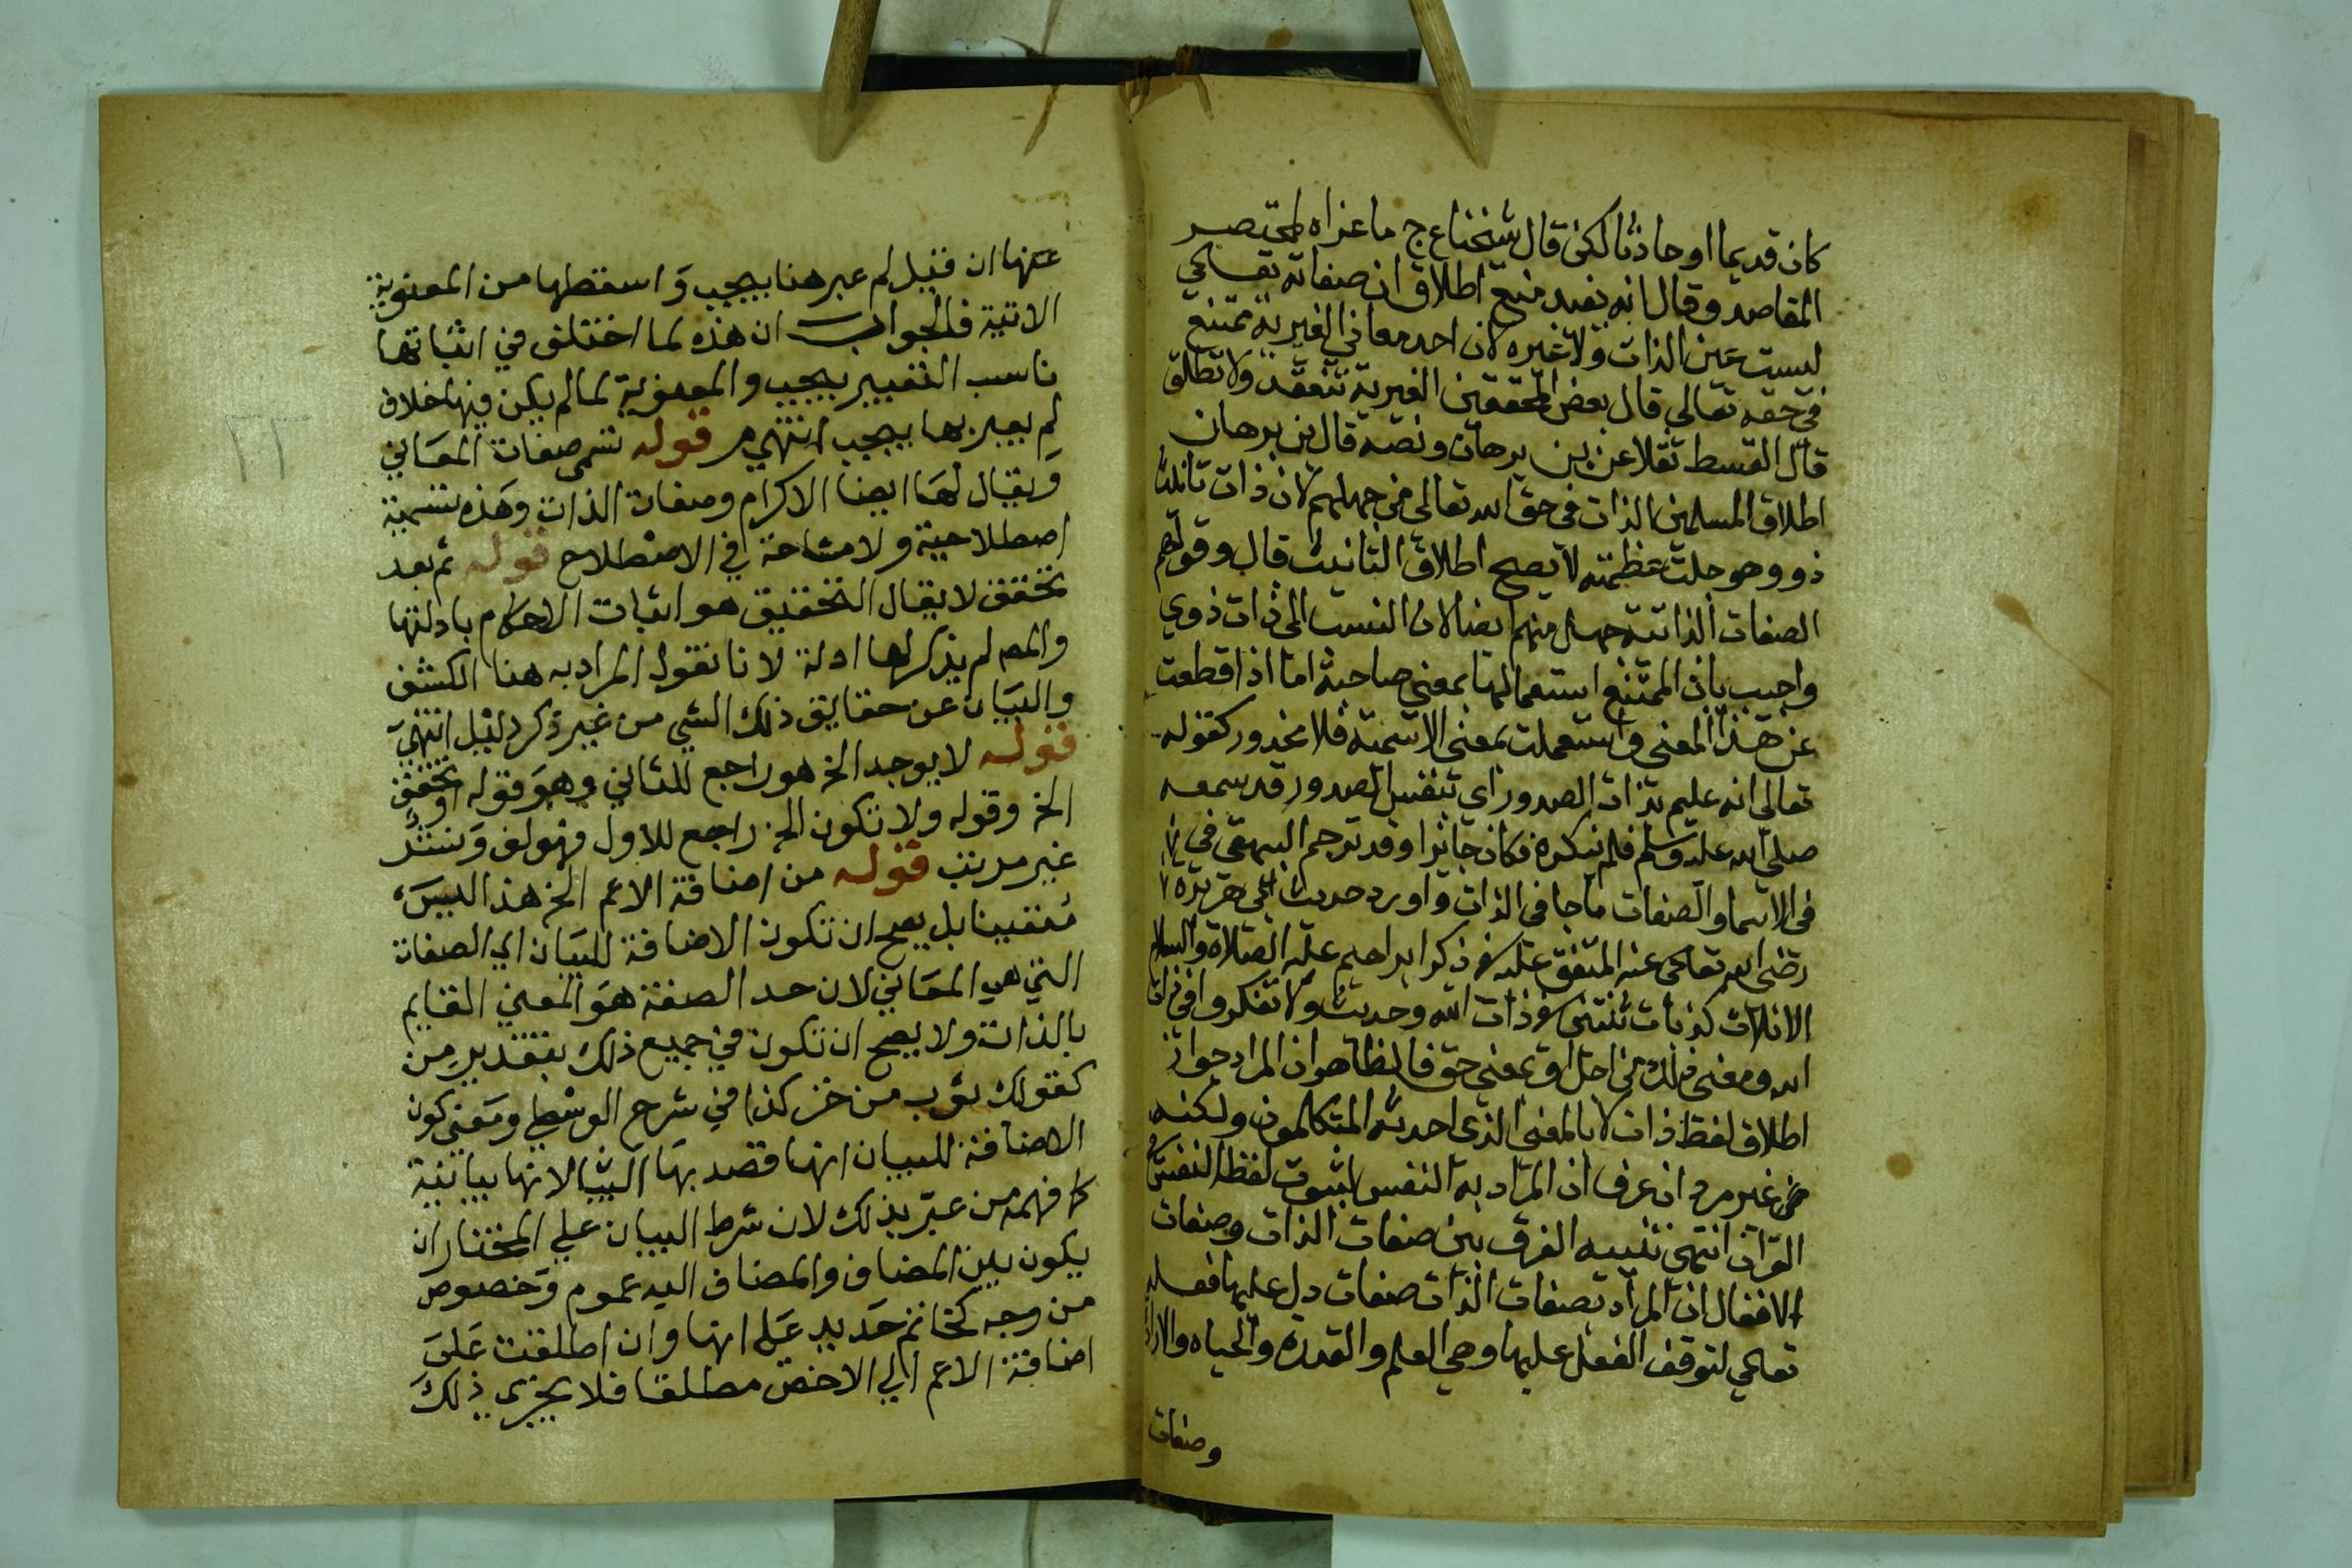 كان قديما او حادثا لكن قال شيخنا ع ج ما عزاه لمختصر
المقاصد وقال انه بعيد منع اطلاق ان صفاته تعالى
ليست عين الذات ولا غيره لان احد معاني الغيرية ممتنع
في حقه تعالى قال بعض المحققين الغيرية تنعقد ولا تطلق
قال القسط نقلا عن بن برهان ونصه قال بن برهان
اطلاق المسلمين الذات في حق الله تعالى من جهلهم لان ذات تانيث
ذو وهو جلت عظمته لا يصح اطلاق التانيث قال وقولهم
الصفات الذاتية جهل منهم ايضا لان النسب الى ذات ذوي
واجيب بان الممتنع استعمالها بمعنى صاحبة اما اذا قطعت
عن هذا المعنى واستعملت بمعنى الاسمية فلا محذور كقوله
تعالى انه عليم بذات الصدور اي بنفس الصدور قد سمعه
صلى الله عليه وسلم فلم ينكره فكان جائزا وقد ترجم البيهقي في
في الاسما والصفات ما جا في الذات واورد حديث ابي هريرة
رضي الله تعالى عنه المتفق عليه في ذكر ابراهيم عليه الصلاة والسلام
الا ثلاث كذبات ثنتين في ذات الله وحديث ولا تفكروا في ذات
الله ومعنى ذلك من اجل او بمعنى حق فالظاهر ان المراد جواز
اطلاق لفظ ذات لا بالمعنى الذي احدثه المتكلمون ولكنه
من غير مرد ان عرف ان المراد به النفس لثبوت لفظ النفس في
القران انتهى تنبيه الفرق بين صفات الذات وصفات
الافعال ان المراد بصفات الذات صفات دل عليها فعله
تعالى لتوقف الفعل عليها وهي العلم والقدرة والحياه والارادة
وصفات
عنها ان قيل لم عبر هنا بيجب واسقطها من المعنوية
الاتية فالجواب ان هذه لما اختلف في اثباتها
ناسب التعبير بيجب والمعنوية لما لم يكن فيها خلاف
لم يعبر بها بيجب انتهى م قوله تسمى صفات المعاني
ويقال لها ايضا الاكرام وصفات الذات وهذه تسمية
اصطلاحية ولا مشاحة في الاصطلاح قوله ثم بعد
تحقق لا يقال التحقيق هو اثبات الاحكام بادلتها
والمص لم يذكر لها ادلة لانا نقول المراد به هنا الكشف
والبيان عن حقايق ذلك الشي من غير ذكر دليل انتهى
قوله لا يوجد الخ هو راجع للثاني وهو قوله او تحقق
الخ وقوله ولا تكون الخ راجع للاول فهو لف ونشر
غير مرتب قوله من اضافة الاعم الخ هذا ليس
متعينا بل يصح ان تكون الاضافة للبيان اي الصفات
التي هي المعاني لان حد الصفة هو المعنى القايم
بالذات ولا يصح ان تكون في جميع ذلك بتقدير من
كقولك ثوب من خز كذا في شرح الوسطي ومعنى كون
الاضافة للبيان انها قصد بها البيا لا انها بيانية
كا فهمه من عبر بذلك لان شرط البيان على المختار ان
يكون بين المضاف والمضاف اليه عموم وخصوص
من وجه كخاتم حديد على انها وان اطلقت على
اضافة الاعم الى الاخص مطلقا فلا يجزى ذلك
٢٢